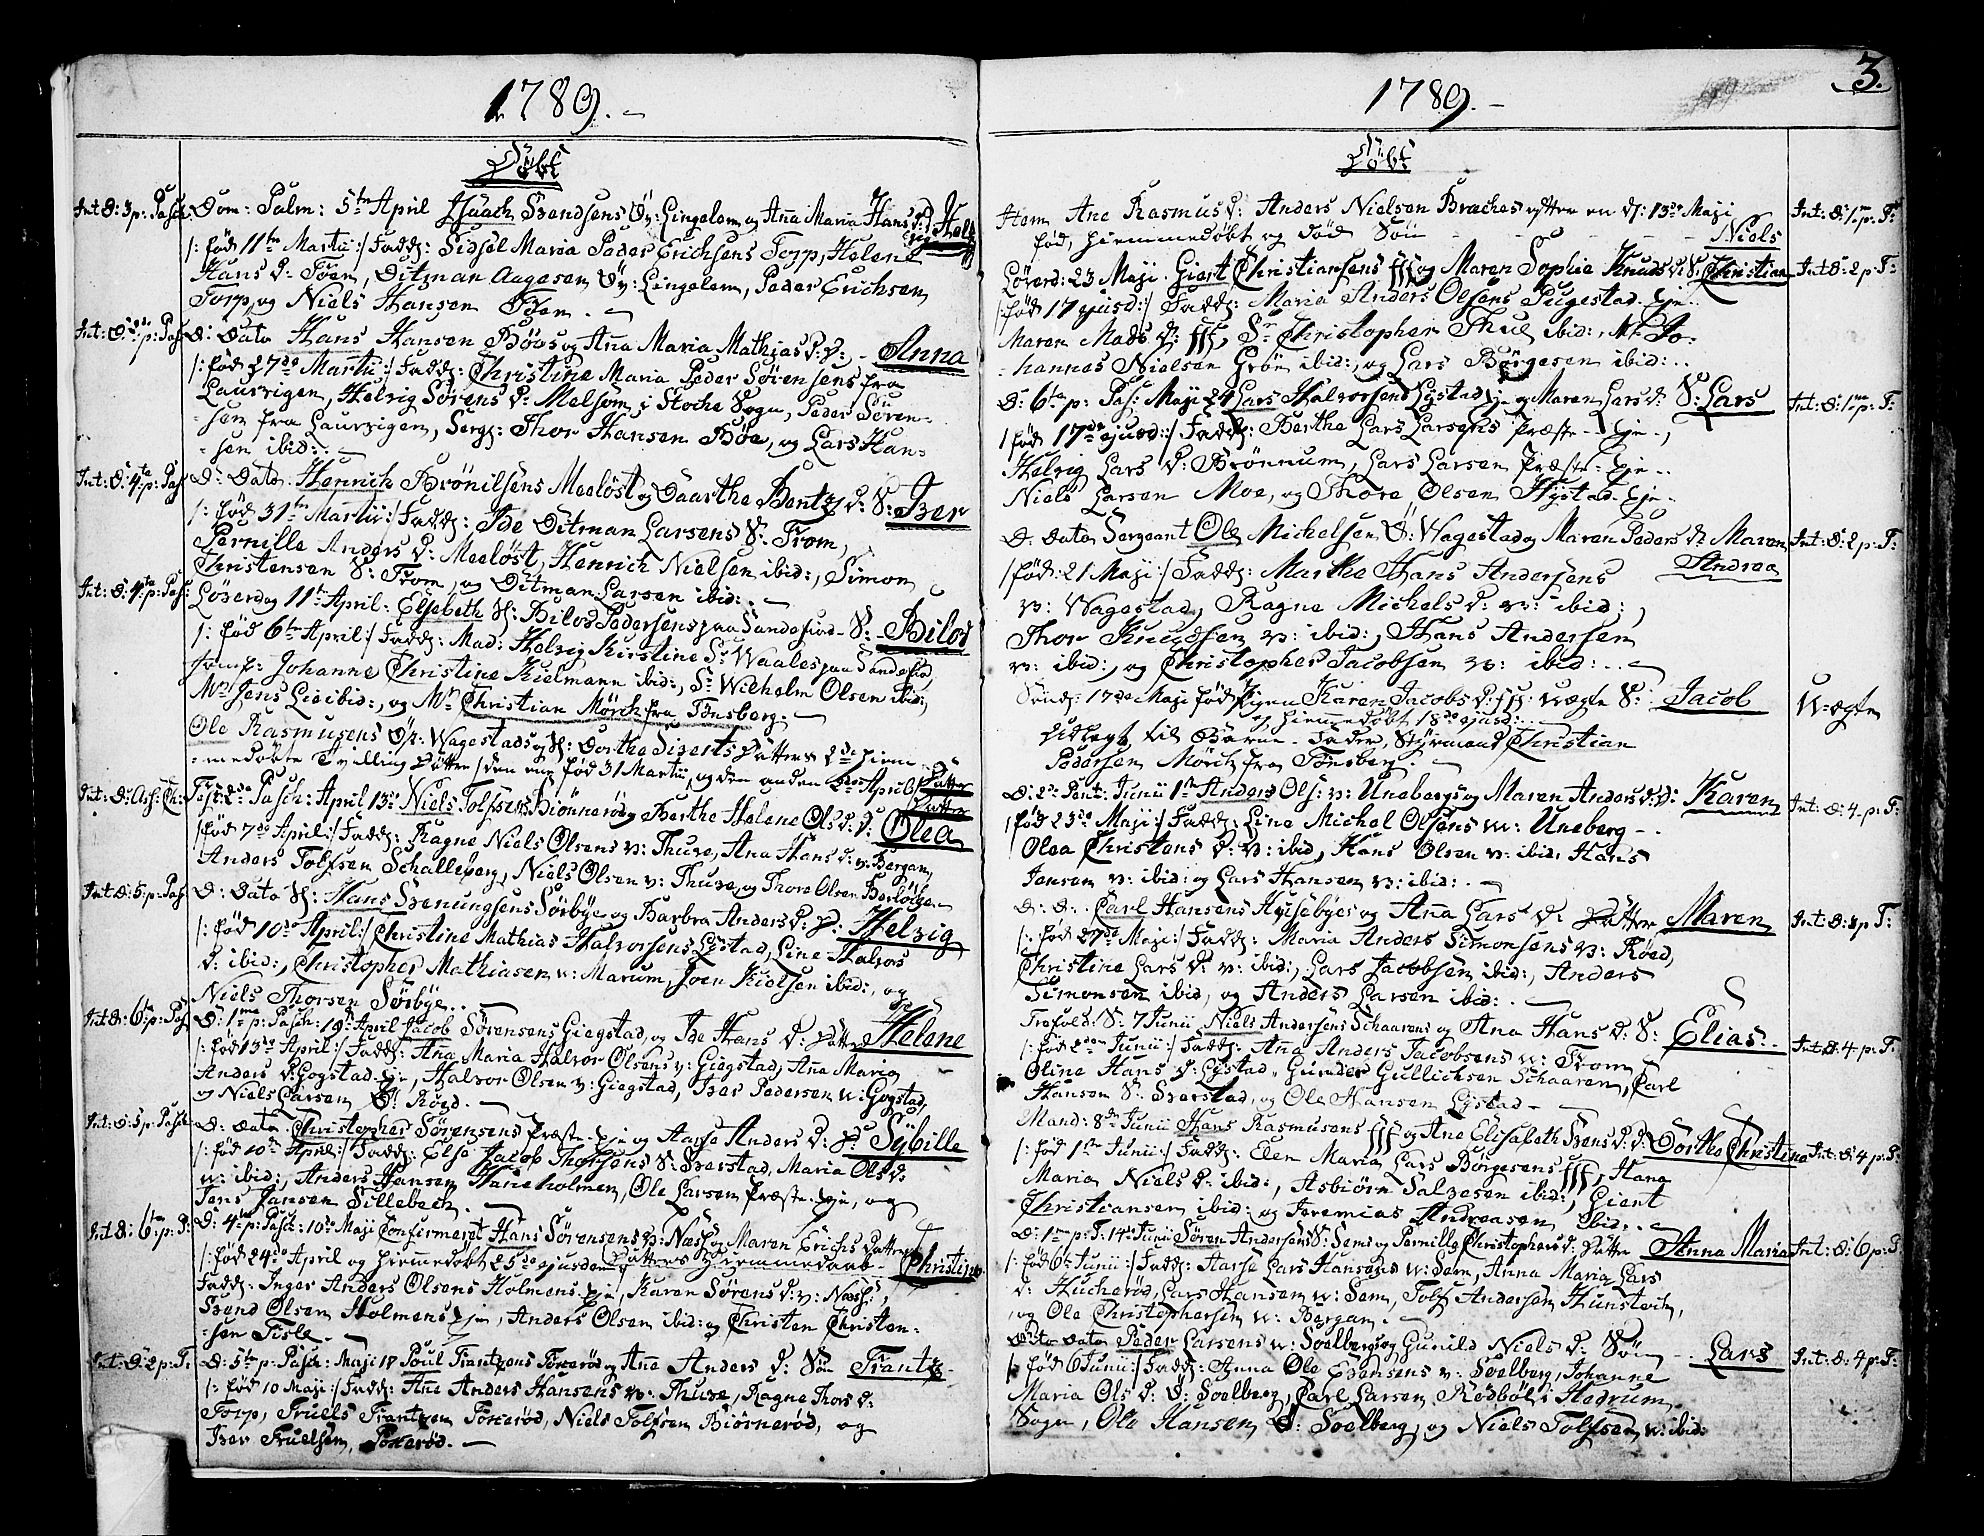 1789.
Døbt
Int: D: 3 p: Pasch: Dom: Palm: 5te April Isaach Svendsens Ø: Lingelem og Aña Maria Hans D:
/: fød 11te Martii :/ Fadd: Sidsel Maria Peder Erichsens Torp, Helene
Hans D: Töen, Ditman Aagesen Ø: Lingelem, Peder Erichsen
Torp, og Niels Hansen
Int: D: p: Pasch D: Dato Hans Hansen Böes og Aña Maria Mathias D: D: Anna
/: fød 27de Martii :/ Fadd: Christine Maria Peder Sörensens fra
Laurvigen, Helvig Sörens D: Melsom i Stocke Sogn, Peder Sören-
-sen fra Laurvigen, Serg: Thor Hansen Böe, og Lars Han-
-sen ibid:
Int: D: 4te p: Pas: D: Dato Henrich Brönilsens Meelöst og Dorthe Bentz D: S: Iver
/: fød 31te Martii :/ Fadd: Ide Ditman Larsens S: From,
Pernille Anders D: Meelöst, Henrich Nielsen ibid:, Simon
Christensen S: From, og Ditman Larsen ibid:
Int: D: 4te p: Pas: Löverdag 11te April: Elsebeth H: Bilos Pedersens paa Sandefiord S: Bilod
/: fød 6te April :/ Fadd: Mad: Helvig Kirstine Sr Waales paa Sandefiord,
Jomf: Johanne Christine Kielmann ibid:, Sr Wilhelm Olsen ibid:,
Mr Jens Lie ibid:, og Mr Christian Mörch fra Tönsberg.
Ole Rasmusens Ø: Wagestads og H: Dorthe Siverts Datters 2de hiem-
-medöbte Tvilling Döttre /den ene fød 31 Martii, og den anden 2de April/ Datter
Datter
Int: D: Asc: Ch: Fest: 2de Pasch: April 13de Niels Tolfsens Biönneröd og Berthe Helene Ols D: D: Olea
/: fød 7de April :/ Fadd: Ragne Niels Olsens v: Thuve, Aña Hans D: v: Bergan,
Anders Tolfsen Schalleberg, Niels Olsen v: Thuve, og Thore Olsen
Int: D: 5: p: Pas: D: Dato H: Hans Svenungsens Sörbye og Barbra Anders D: D: Helvig
/: fød 10de April :/ Christine Mathias Halvorsens Lystad, Line Halvors
D: ibid:, Christopher Mathiasen v: Marum, Joen Kielsen ibid:, og
Niels Thorsen Sörbye.
Int: D: 6te p: Pas: D: 1me p: Pasch: 19de April Jacob Sörensens Giegstad, og Ide Hans D: Datter Helene
/: fød 13de April :/ Fadd: Aña Maria Halvor Olsens v: Giegstad, Aña Maria
Anders D: Gogstad Eje, Halvor Olsen v: Giegstad, Iver Pedersen v: Gogstad,
og Niels Larsen Ø: Röed.
Int: D: 5 p: Pasch: D: Dato Christopher Sörensens Præste-Eje og Aase Anders D: D: Sybille
/: fød 10de April :/ Fadd: Else Jacob Thorsens S: Sverstad, Maria Ols D:
v: ibid:, Anders Hansen Haneholmen, Ole Larsen Præste-Eje, og
Jens Jansen Sillebech.
Int: D: 6te p: P: D: 4te p: Pasch: 10de Maji Confirmeret Hans Sörensens v: Næss og Maren Erichs Datters
/: fød 24de April og hiemmedöbt 25de ejusdem Datters Hiemmedaab Christine
Fadd: Inger Anders Olsens Holmens Eje, Karen Sörens D: v: Næss,
Svend Olsen Holmens Eje, Anders Olsen ibid: og Christen Christen-
-sen Fisle.
Int: D: 2 p: T: D: 5te p: Pasch: Maji 17 Poul Frantzens Fokeröd og Añe Anders D: Sön Frantz
/: fød 10 Maji :/ Fadd: Añe Anders Hansens v: Thuve, Ragne Thors D:
Torp, Truels Frantzen Fokeröd, Niels Tolfsen Biörneröd, og
Iver Truelsen, Fokeröd.
1789.
3.
Døbt
Hem Ane Rasmus D: Anders Nielsen Braches efter en d: 13de Maji Int: D: 1me p: T:
fød, hiemmedöbt og död Sön Niels
Löverd: 23 Maji Giert Christiansens fss og Maren Sophie Knuds D: S: Christian Int: D: 2 p: T:
/: fød 17 ejusd :/ Fadd: Maria Anders Olsens Pugestad Eje
Maren Mads D: fss, Sr Christopher Thue ibid:, Mr Jo-
-hannes Nielsen Grön ibid:, og Lars Börgesen ibid:
D: 6te p: Pas: Maji 24 Lars Halvorsens Lystad Eje og Maren Lars D: S: Lars Int: D: 1me p: T:
/: fød 17de ejusd :/ Fadd: Berthe Lars Larsens Præste-Eje,
Helvig Lars D: Brönnum, Lars Larsen Præste-Eje
Niels Larsen Moe, og Thore Olsen Hystad Eje
D: Dato Sergeant Ole Michelsen Ø: Wagestad og Maren Peders D: Maren Int: D: 2 p: T:
/: fød 21 Maji :/ Fadd: Marthe Hans Andersens Andrea
v: Wagestad, Ragne Michels D: v: ibid:,
Thor Knudsen v: ibid:, Hans Andersen
v: ibid:, og Christopher Jacobsen v: ibid:
Sönd: 17de Maji fød Pigen Karen Jacobs D: fss: uægte S: Jacob U-ægte
og hiemmedöbt 18de ejusd:
Udlagt til Barne-Fader, Styrmand Christian
Pedersen Mörch fra Tönsberg.
D: 2de Pent: Junii 1te Anders Ols: v: Unebergs og Maren Anders D: D: Karen Int: D: 4 p: T:
/: fød 23de Maji :/ Fadd: Line Michel Olsens v: Uneberg
Olea Christens D: v: ibid, Hans Olsen v: ibid: Hans
Jensen v: ibid: og Lars Hansen v: ibid:
D: D: Carl Hansens Ausebyes og Aña Lars D: Datter Maren Int: D: 3 p: T:
/: fød 27de Maji :/ Fadd: Maria Anders Simonsens v: Röed,
Christine Lars D: v: ibid:, Lars Jacobsen ibid:, Anders
Simonsen ibid, og Anders Larsen ibid:
Trefold: S: 7 Junii Niels Andersens Schaarens og Ana Hans D: S: Elias Int: D: 4 p: T:
/: fød 2den Junii :/ Fadd: Aña Anders Jacobsens v: From,
Oline Hans D: Lystad, Gunder Gullichsen Schaaren, Carl
Hansen S: Sverstad, og Ole Hansen Lystad
Mand: 8de Junii Hans Rasmusens fss og Ane Elisabeth Svens D: D: Dorthe Christina Int: D: 4 p: T:
/: fød 1te Junii :/ Fadd: Elen Maria Lars Börgesens fss, Hana
Maria Niels D: ibid:, Asbiörn Salvesen ibid:, Giert
Christiansen ibid: og Jeremias Andreasen ibid:
D: 1me p: T: 14de Junii Sören Andersens S: Sems og Pernille Christophers D: Datter Anna Maria Int: D: 6 p: T:
/: fød 6te Junii :/ Fadd: Aarse Lars Hansens v: Sem, Anna Maria Lars
D: Hucheröd, Lars Hansen v: Sem, Tolf Andersen Hunstoch,
og Ole Christophersen v: Bergan.
Dito Dato Peder Larsens v: Soelbergs og Gunild Niels D: Sön Lars Int: D: 4 p: T:
/: fød 6 Junii :/ Fadd: Anna Ole Evensens v: Soelberg, Johanne
Maria Ols D: Ø: Soelberg, Carl Larsen Rödböl i Hedrum
Sogn, Ole Hansen Ø: Soelberg, og Niels Tolfsen v: ibid: